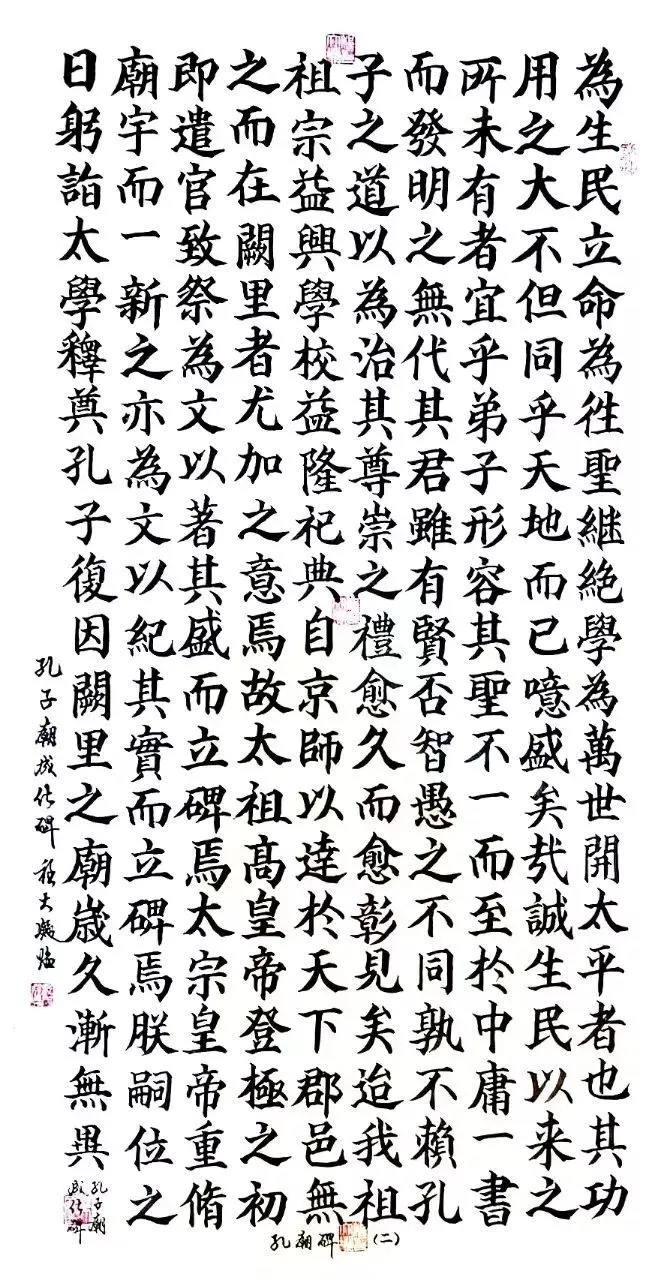 為生民立命為徃聖継絶學為萬世開太平者也其功
用之大不但同乎天地而已噫盛矣㢤誠生民以来之
所未有者宜乎弟子形容其聖不一而至於中庸一書
而發明之無代其君雖有賢否智愚之不同孰不賴孔
子之道以為治其尊崇之禮愈久而愈彰見矣迨我祖
祖宗益興學校益隆祀典自京師以逹於天下郡邑無
之而在闕里者尤加之意焉故太祖髙皇帝登極之初
即遣官致祭為文以著其盛而立碑焉太宗皇帝重脩
廟宇而一新之亦為文以紀其實而立碑焉朕嗣位之
日躬詣太學釋奠孔子復因闕里之廟歳久漸無異
孔子廟
成化碑
孔子廟成化碑
孔廟碑(二)